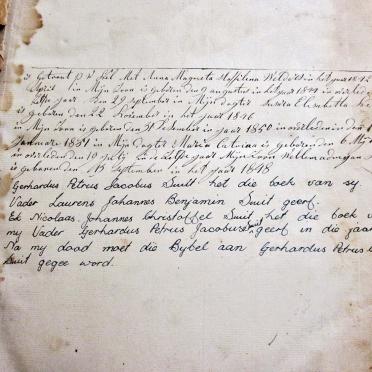 is Getrout Met Anna Magrieta in het jaar 1842
April in Mijn Zoon is geboren den 9 augustus in het jaar 1844 in overleden
Zelfde jaar Den 29 September in Mijn dogter Elisabetha
is geboren den 22 November in het jaar 1846
in Mijn Zoon is geboren den 31 December in jaar 1850 in overleden den
Januarie 1851 in Mijn dogter Maria is geboren den 6 Mei
in overleden den 10 July in Zelfde jaar Mijn Zoon
is geboren den 15 September in het jaar 1848
Gerhardus Petrus Jacobus Smit het die boek van sy
Vader Laurens Johannes Benjamin Smit geerf.
Ek Nicolaas Johannes Christoffel Smit het die boek
my Vader Gerhardus Petrus Jacobus Smit geerf in die jaar
Na my dood moet die Bybel aan Gerhardus Petrus
Smit gegee word.